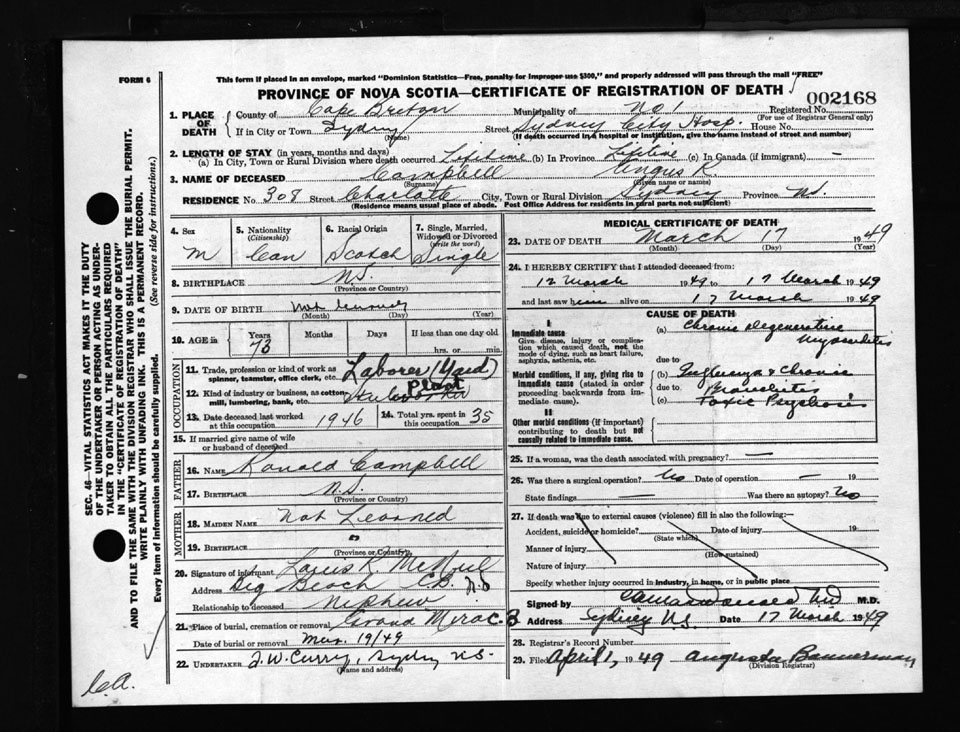 FORM 6
This form if placed in an envelope, marked "Dominion Statistics—Free, penalty for improper use $300," and properly addressed will pass through the mail "FREE"
PROVINCE OF NOVA SCOTIA—CERTIFICATE OF REGISTRATION OF DEATH
002168
Registered No.
(For use of Registrar General only)
1. PLACE OF DEATH
County of Cape Breton Municipality of No 1
If in City or Town Sydney Street Sydney City Hosp. House No.
(Name) (If death occurred in a hospital or institution, give the name instead of street and number)
2. LENGTH OF STAY (in years, months and days)
(a) In City, Town or Rural Division where death occurred Lifetime (b) In Province Lifetime (c) In Canada (if immigrant) —
3. NAME OF DECEASED Campbell Angus R.
(Surname) (Given name or names)
RESIDENCE No. 308 Street Charlotte City, Town or Rural Division Sydney Province N.S.
(Residence means usual place of abode. Post Office Address for residents in rural parts not sufficient)
4. Sex M
5. Nationality (Citizenship) Can
6. Racial Origin Scotch
7. Single, Married, Widowed or Divorced (write the word) Single
8. BIRTHPLACE N.S.
(Province or Country)
9. DATE OF BIRTH Not
(Month) (Day) (Year)
10. AGE in Years 73 Months Days If less than one day old
hrs. or min.
OCCUPATION
11. Trade, profession or kind of work as spinner, teamster, office clerk, etc. Laborer (Yard)
12. Kind of industry or business, as cotton mill, lumbering, bank, etc. Plant
13. Date deceased last worked at this occupation 1946
14. Total yrs. spent in this occupation 35
15. If married give name of wife or husband of deceased
FATHER
16. NAME Ronald Campbell
17. BIRTHPLACE N.S.
(Province or Country)
MOTHER
18. MAIDEN NAME Not Learned
19. BIRTHPLACE "
(Province or Country)
20. Signature of informant R.
Address Big Beach C.B. N.S
Relationship to deceased Nephew
21. Place of burial, cremation or removal Grand Mira C.B
Date of burial or removal Mar. 19/49
22. UNDERTAKER J.W. Curry, Sydney N.S.
(Name and address)
MEDICAL CERTIFICATE OF DEATH
23. DATE OF DEATH March 17 1949
(Month) (Day) (Year)
24. I HEREBY CERTIFY that I attended deceased from:
12 March 1949 to 17 March 1949
and last saw him alive on 17 March 1949
CAUSE OF DEATH
I
Immediate cause
Give disease, injury or complication which caused death, not the mode of dying, such as heart failure, asphyxia, asthenia, etc.
(a) Chronic Degenerative Myocarditis
due to
Morbid conditions, if any, giving rise to immediate cause (stated in order proceeding backwards from immediate cause).
(b) Influenza & Chronic Bronchitis
due to
(c) Toxic Psychosis
II
Other morbid conditions (if important) contributing to death but not causally related to immediate cause.
25. If a woman, was the death associated with pregnancy? —
26. Was there a surgical operation? No Date of operation — 19
State findings — Was there an autopsy? No
27. If death was due to external causes (violence) fill in also the following:—
Accident, suicide or homicide? Date of injury 19
(State which)
Manner of injury
(How sustained)
Nature of injury
Specify whether injury occurred in industry, in home, or in public place
Signed by M.D.
Address Sydney N.S. Date 17 March 1949
28. Registrar's Record Number
29. Filed April 1, 1949 Augusta Bannerman
(Division Registrar)
SEC. 46—VITAL STATISTICS ACT MAKES IT THE DUTY
OF THE UNDERTAKER OR PERSON ACTING AS UNDER-
TAKER TO OBTAIN ALL THE PARTICULARS REQUIRED
IN THE "CERTIFICATE OF REGISTRATION OF DEATH"
AND TO FILE THE SAME WITH THE DIVISION REGISTRAR WHO SHALL ISSUE THE BURIAL PERMIT.
WRITE PLAINLY WITH UNFADING INK. THIS IS A PERMANENT RECORD.
Every item of information should be carefully supplied. (See reverse side for instructions.)
C.A.